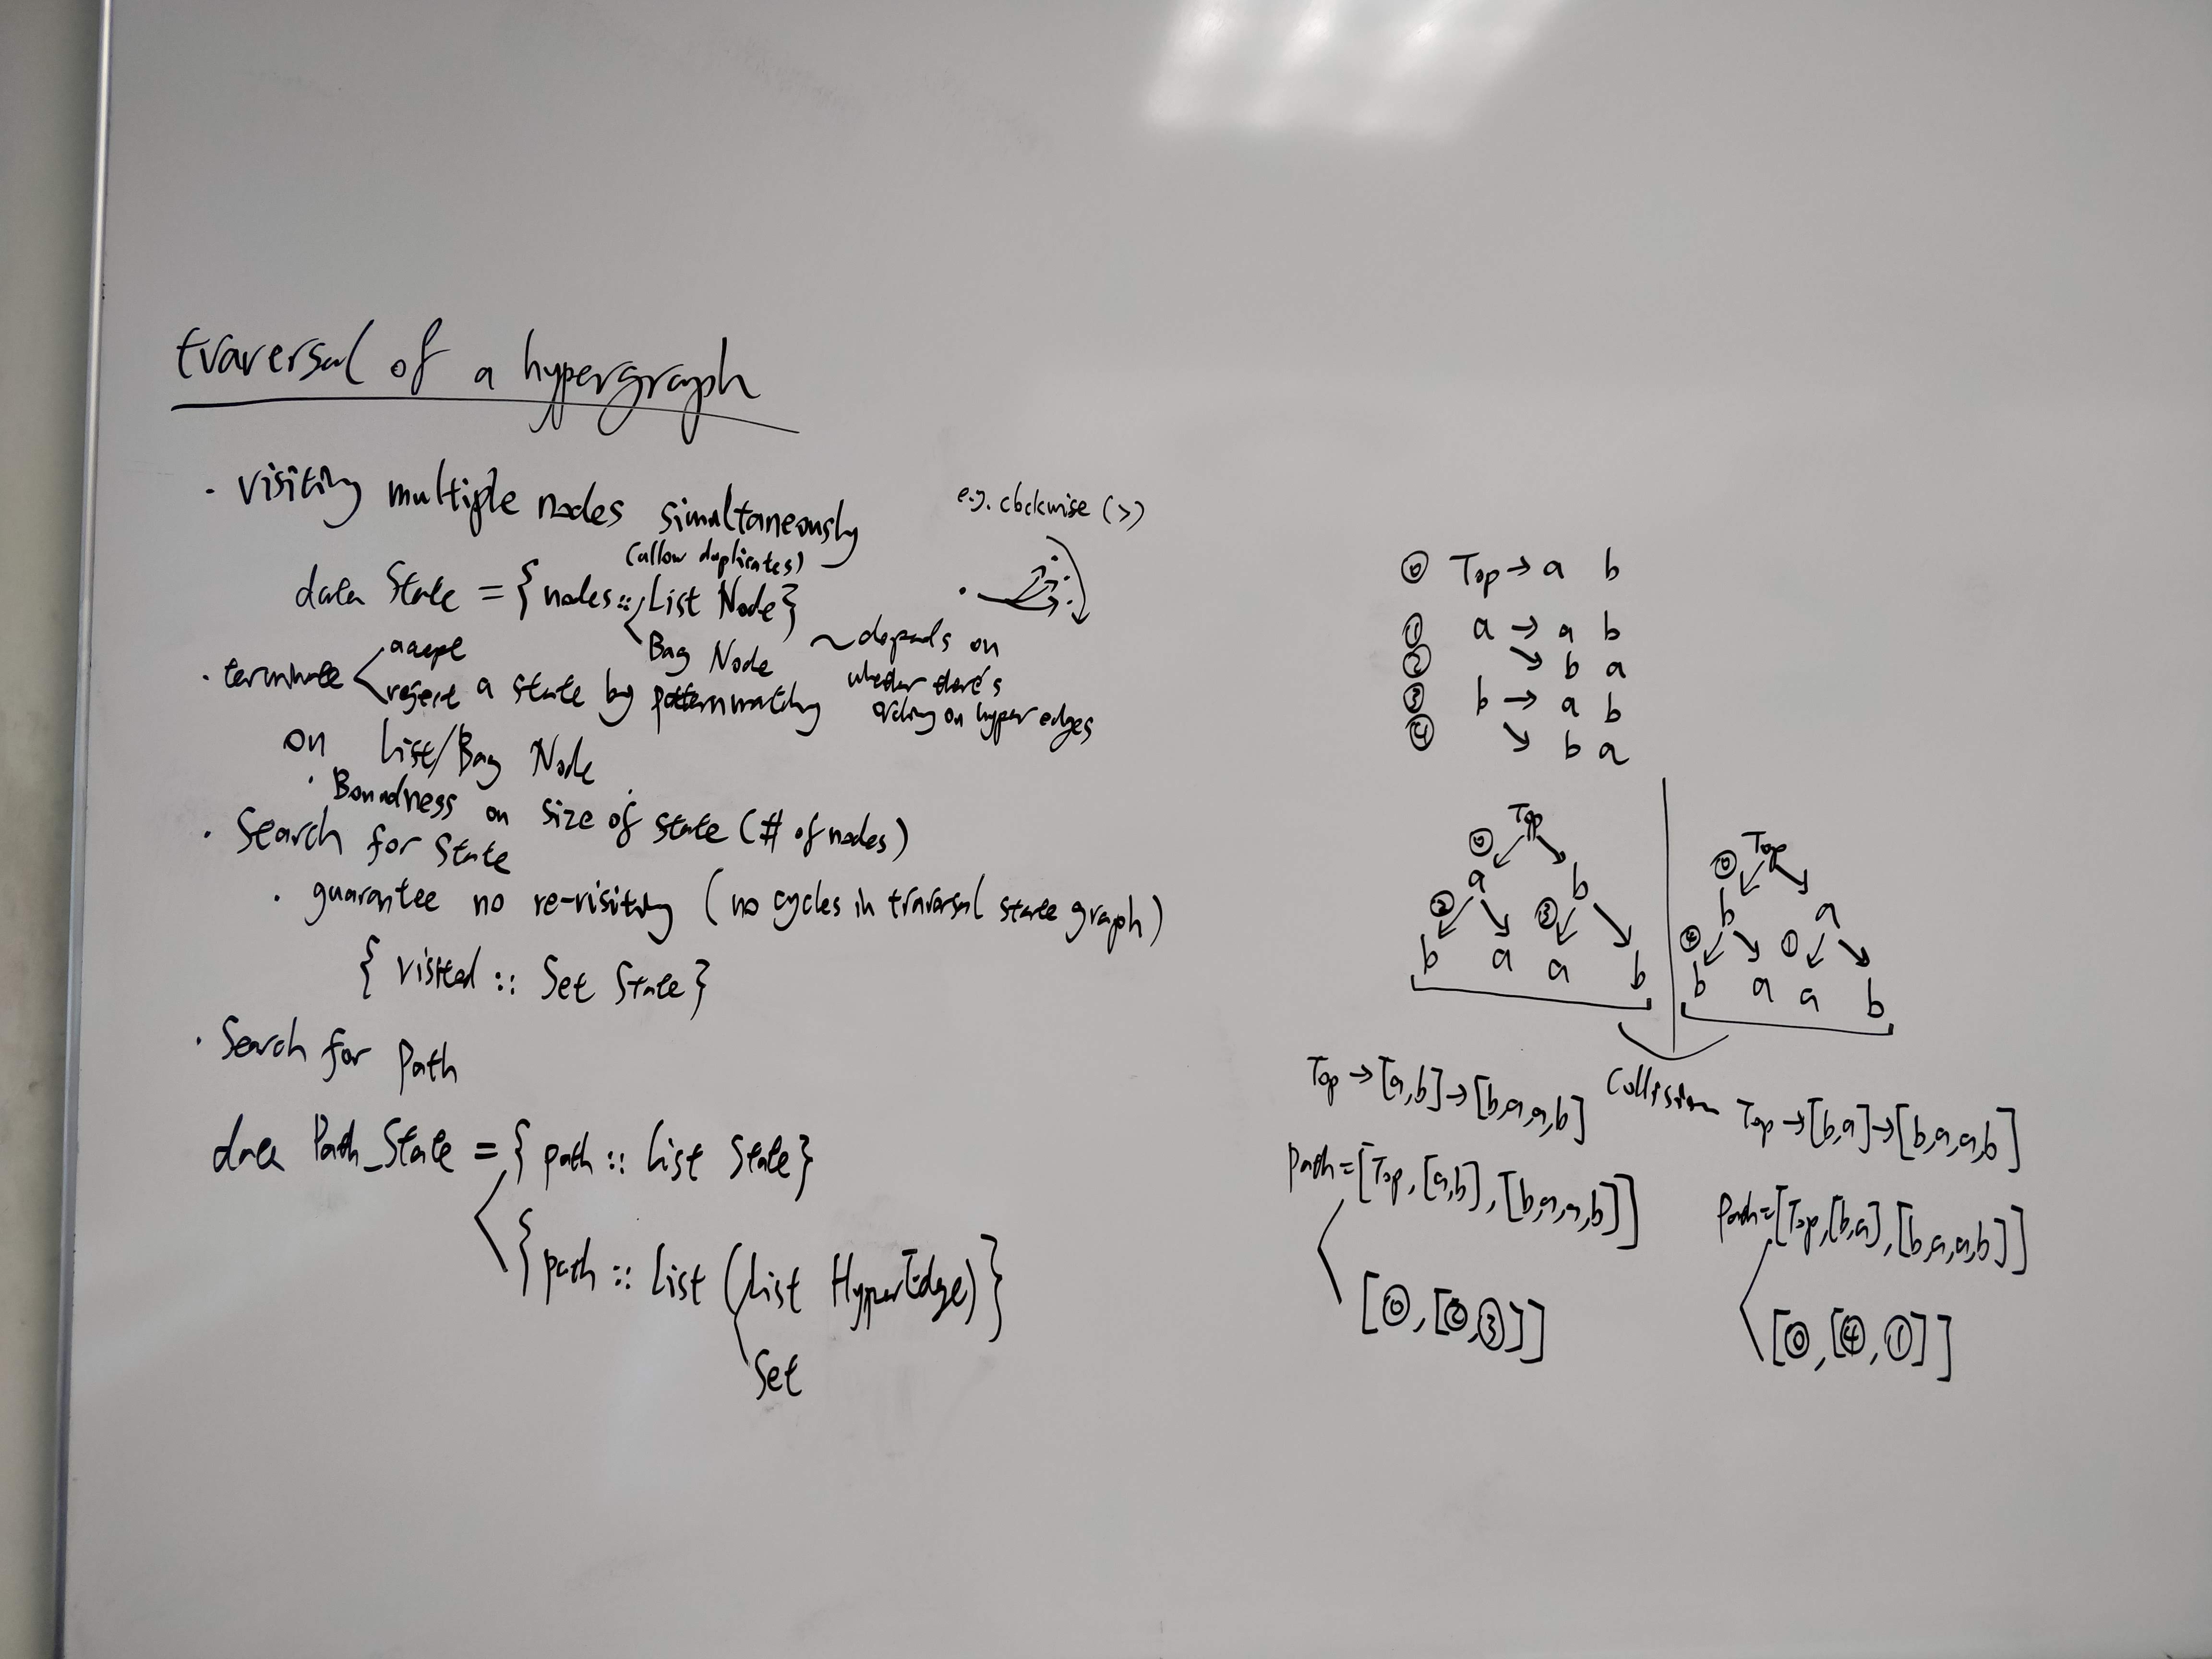 traversal of a hypergraph
· visiting multiple nodes simultaneously
(allow duplicates)
data State = { nodes :: List Node}
Bag Node ~ depends on
whether there's
ording on hyper edges
e.g. clockwise (>)
· terminate < accept
reject a state by pattern matching
on List/Bag Node
· Boundness on size of state (# of nodes)
· Search for State
· guarantee no re-visiting (no cycles in traversal state graph)
{ visited :: Set State}
· Search for Path
data Path_State = { path :: List State}
{ path :: List (List HyperEdge)}
Set
⓪ Top → a b
① a → a b
② ↘ b a
③ b → a b
④ ↘ b a
Top
⓪
a b
② ③
b a a b
Top
⓪
b a
④ ①
b a a b
Collision
Top → [a,b] → [b,a,a,b]
Path = [Top, [a,b], [b,a,a,b]]
[⓪, [②,③]]
Top → [b,a] → [b,a,a,b]
Path = [Top, [b,a], [b,a,a,b]]
[⓪, [④, ①]]